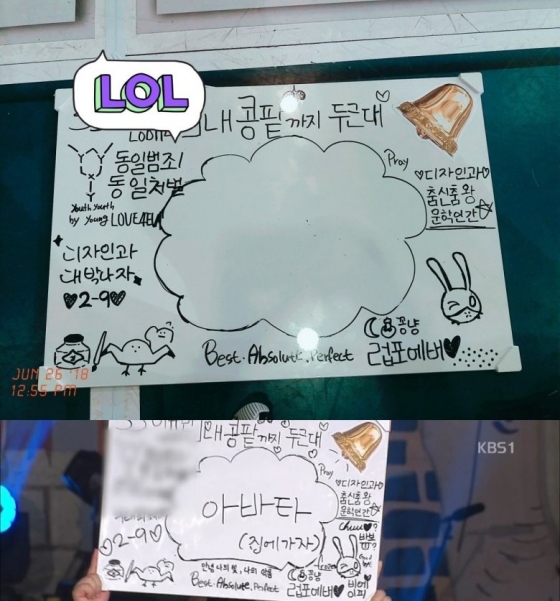 LOL
내 콩팥까지 두근대
동일범죄
동일처벌
Youth Youth
by Young
Pray
♡디자인과♡
춤신춤왕
운학언간
디자인과
대박나자
♥2-9♥
Best. Absolute. Perfect
꽁냥
럽포에버♥
JUN 26 '18
12:55 PM
내 콩팥까지 두근대
KBS1
Pray
♡디자인과♡
춤신춤왕
운학언간
아바타
(집에가자)
♡2-9♡
Chuu♡?
바보
안녕 나의 빛, 나의 어둠
Best. Absolute. Perfect
꽁냥
럽포에버♥
비에
이피